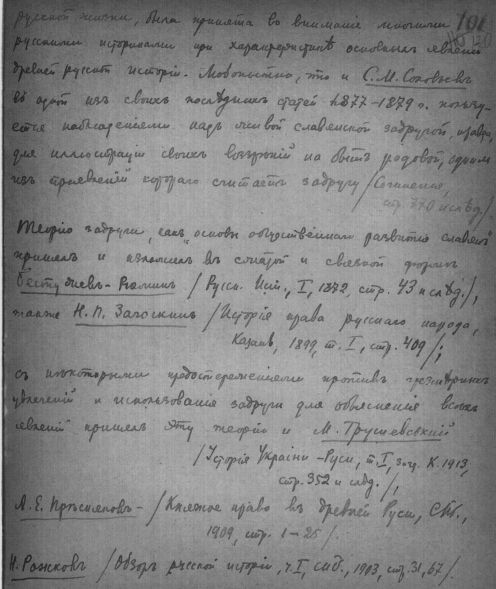 русской жизни, была принята во вниманіе многими 101
русскими историками при характеристикѣ основныхъ явленій
древней русской исторіи. Любопытно, что и С.М. Соловьевъ
въ одной изъ своихъ послѣднихъ статей 1877-1879 г. пользу-
ется наблюденіями надъ живой славянской задругой, правда,
для иллюстраціи своихъ воззрѣній на бытъ родовой, однимъ
изъ проявленій котораго считаетъ задругу /Сочиненія,
стр. 370 и слѣд./
Теорію задруги, какъ основы общественнаго развитія славянъ
принялъ и изложилъ въ сжатой и связной формѣ
Бестужевъ-Рюминъ /Русск. Ист., I, 1872, стр. 43 и слѣд./,
также Н.П. Загоскинъ /Исторія права русскаго народа,
Казань, 1899, т. I, стр. 409/;
съ нѣкоторыми предостереженіями противъ чрезмѣрныхъ
увлеченій и использованія задруги для объясненія всѣхъ
явленій принялъ эту теорію и М. Грушевський
/Історія України-Руси, т. I, К. 1913,
стр. 352 и слѣд./,
А.Е. Прѣсняковъ - /Княжое право въ древней Руси, СПб.,
1909, стр. 1-25/.
Н. Рожковъ /Обзоръ русской исторіи, ч. I, СПб., 1903, стр. 31, 67/.